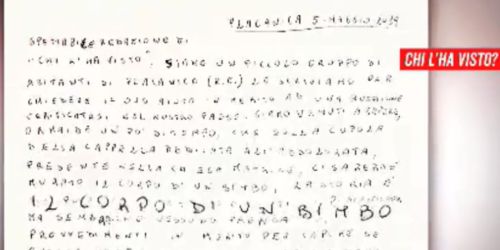 PLACANICA 5 MAGGIO 2019
SPETTABILE REDAZIONE DI
"CHI L'HA VISTO", SIAMO UN PICCOLO GRUPPO DI
CHI L'HA VISTO?
ABITANTI DI PLACANICA (R.C.) LE SCRIVIAMO PER
CHIEDERE IL SUO AIUTO IN MERITO AD UNA
NEL NOSTRO PAESE. SIAMO VENUTI A
DA UN PO' DI TEMPO, CHE SULLA CUPOLA
DELLA CAPPELLA DEDICATA ALL'ADDOLORATA,
PRESENTE NELLA CHIESA MATRICE, CI SAREBBE
MURATO IL CORPO DI UN BIMBO, LA STORIA È
IL CORPO DI UN BIMBO
MA SEMBRA CHE NESSUNO PRENDA
PROVVEDIMENTI IN MERITO PER CAPIRE SE